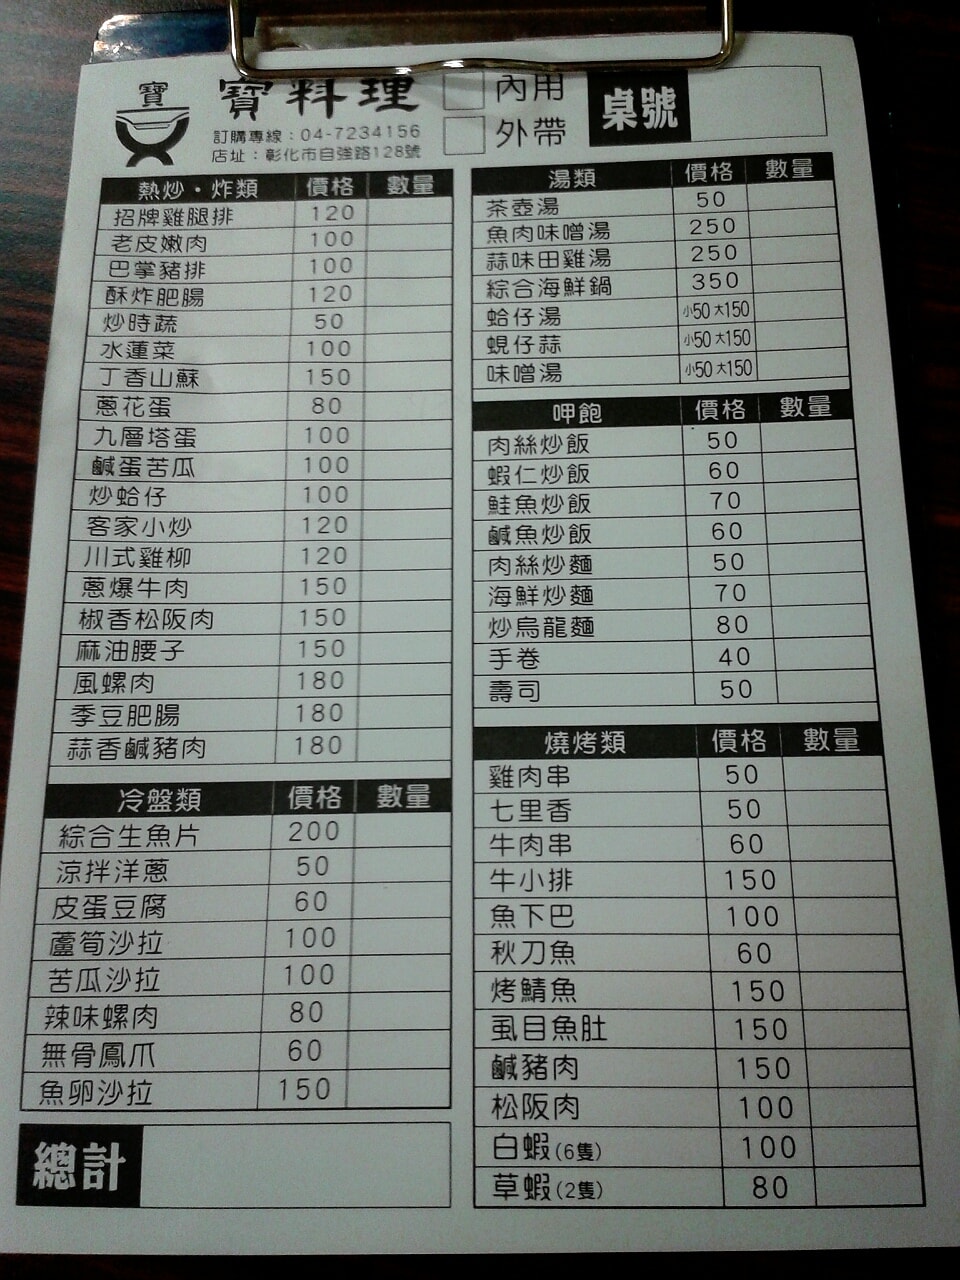 寶
寶料理
訂購專線：04-7234156
店址：彰化市自強路128號
內用
外帶
桌號
熱炒・炸類 價格 數量
招牌雞腿排 120
老皮嫩肉 100
巴掌豬排 100
酥炸肥腸 120
炒時蔬 50
水蓮菜 100
丁香山蘇 150
蔥花蛋 80
九層塔蛋 100
鹹蛋苦瓜 100
炒蛤仔 100
客家小炒 120
川式雞柳 120
蔥爆牛肉 150
椒香松阪肉 150
麻油腰子 150
風螺肉 180
季豆肥腸 180
蒜香鹹豬肉 180
冷盤類 價格 數量
綜合生魚片 200
涼拌洋蔥 50
皮蛋豆腐 60
蘆筍沙拉 100
苦瓜沙拉 100
辣味螺肉 80
無骨鳳爪 60
魚卵沙拉 150
總計
湯類 價格 數量
茶壺湯 50
魚肉味噌湯 250
蒜味田雞湯 250
綜合海鮮鍋 350
蛤仔湯 小50 大150
蜆仔蒜 小50 大150
味噌湯 小50 大150
呷飽 價格 數量
肉絲炒飯 50
蝦仁炒飯 60
鮭魚炒飯 70
鹹魚炒飯 60
肉絲炒麵 50
海鮮炒麵 70
炒烏龍麵 80
手卷 40
壽司 50
燒烤類 價格 數量
雞肉串 50
七里香 50
牛肉串 60
牛小排 150
魚下巴 100
秋刀魚 60
烤鯖魚 150
虱目魚肚 150
鹹豬肉 150
松阪肉 100
白蝦(6隻) 100
草蝦(2隻) 80